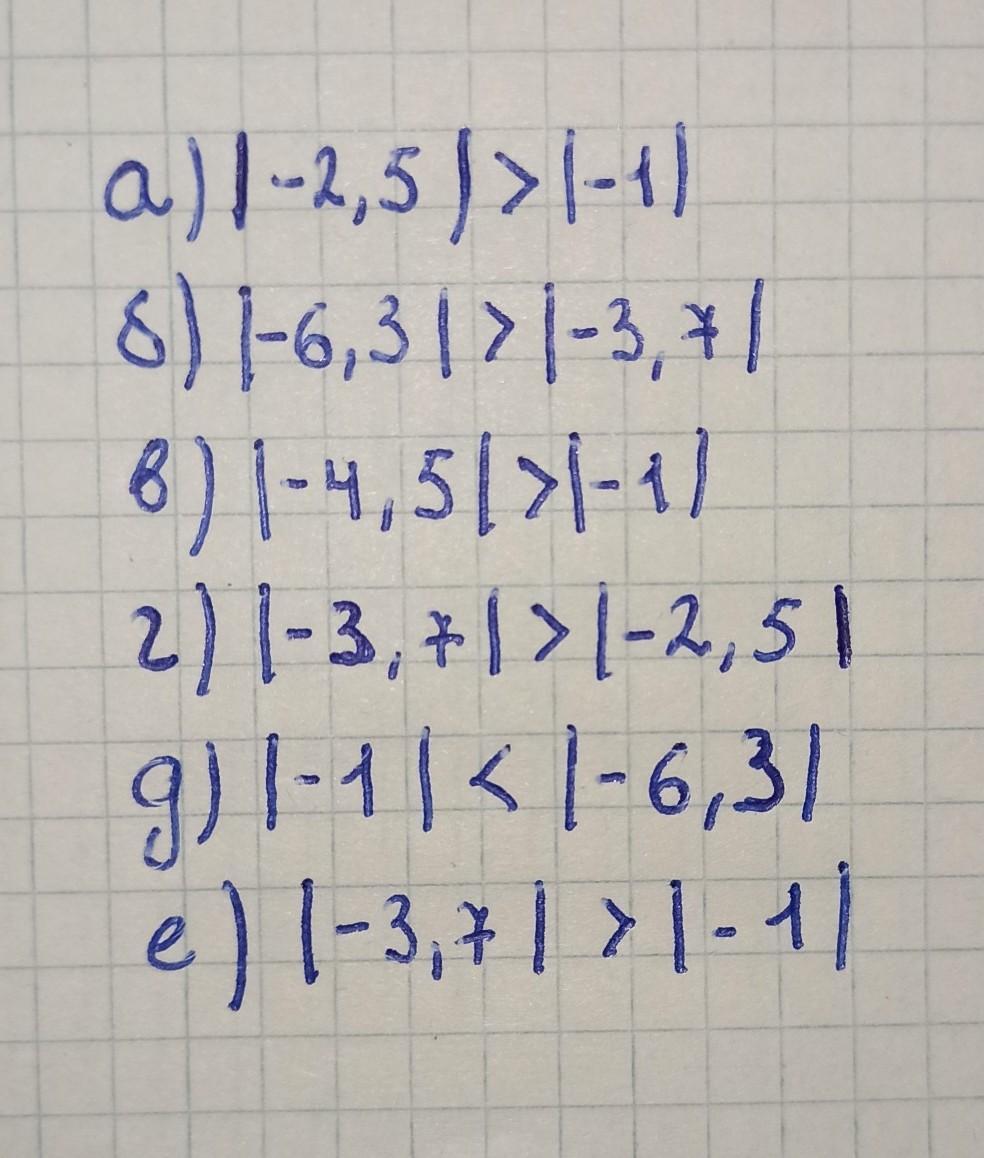 а) |-2,5| > |-1|
б) |-6,3| > |-3,7|
в) |-4,5| > |-1|
г) |-3,7| > |-2,5|
д) |-1| < |-6,3|
е) |-3,7| > |-1|